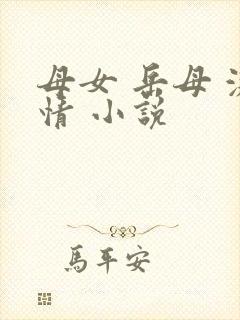 母女 岳母
情 小説
馬平安